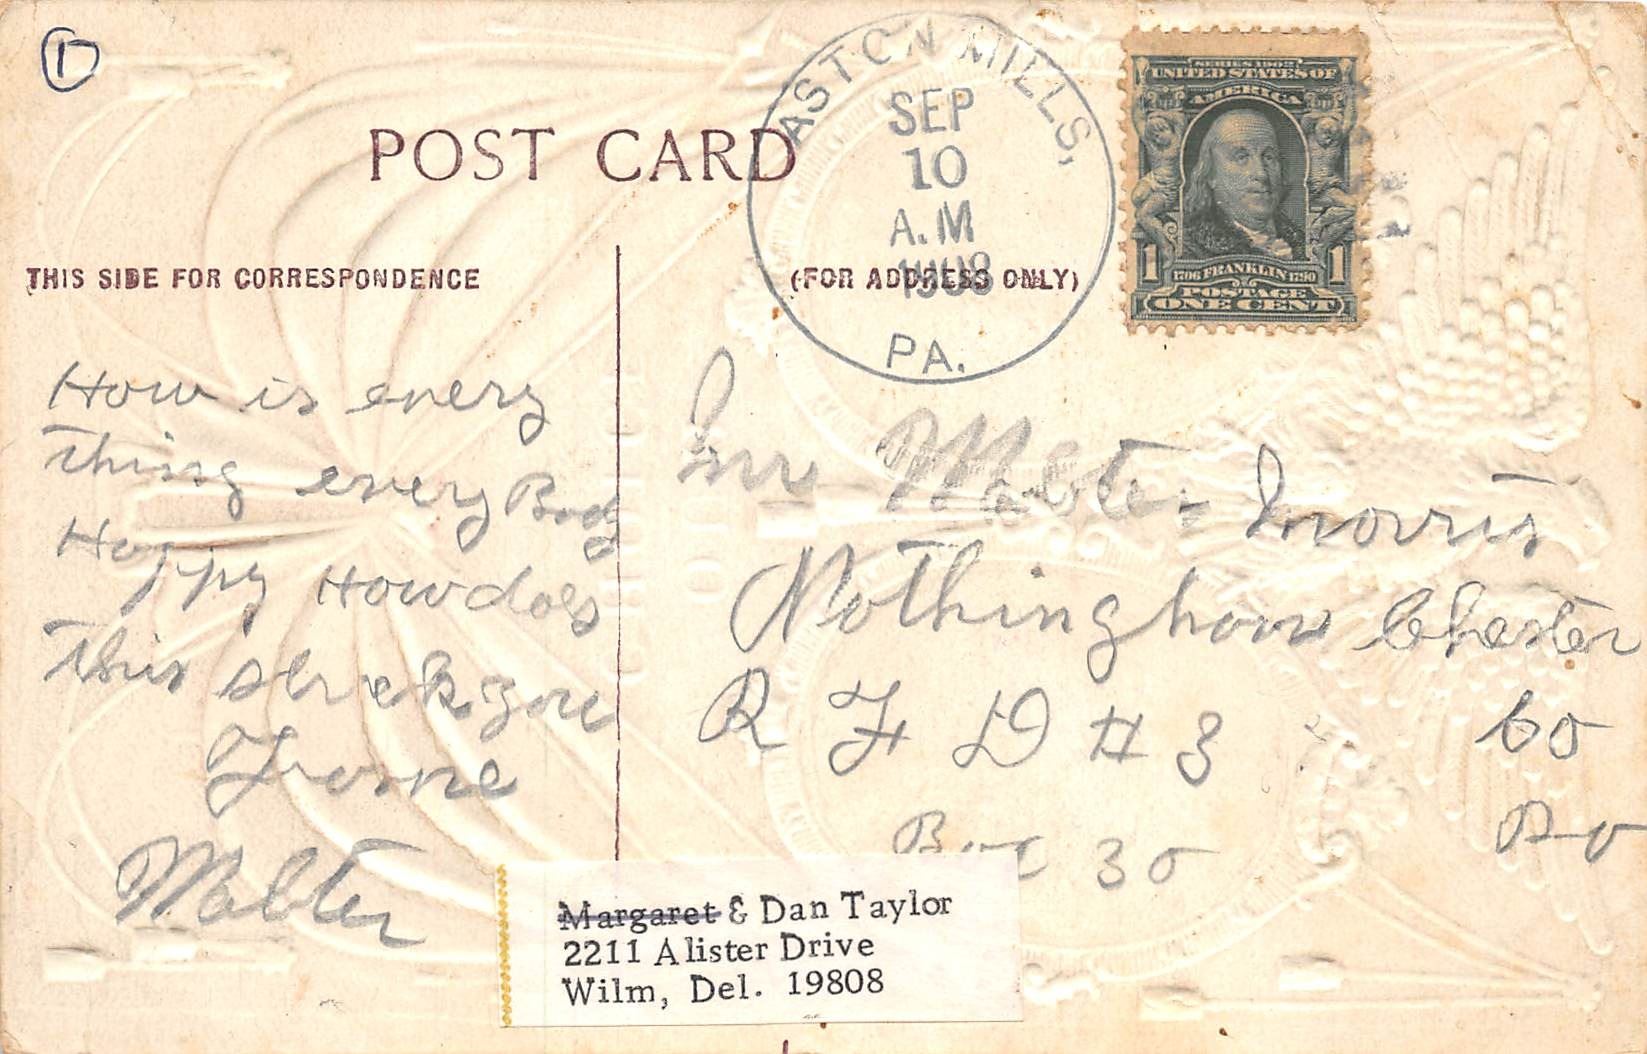 1
POST CARD
ASTON MILLS,
SEP
10
A.M
1908
PA.
SERIES 1902
UNITED STATES OF
AMERICA
1 1706 FRANKLIN 1790 1
POSTAGE
ONE CENT
THIS SIDE FOR CORRESPONDENCE
(FOR ADDRESS ONLY)
How is every
thing every Body
Happy How does
this strek you
Walter
Mr Walter Morris
Nottingham Chester
R F D # 3 Co
Box 30
Margaret & Dan Taylor
2211 Alister Drive
Wilm, Del. 19808